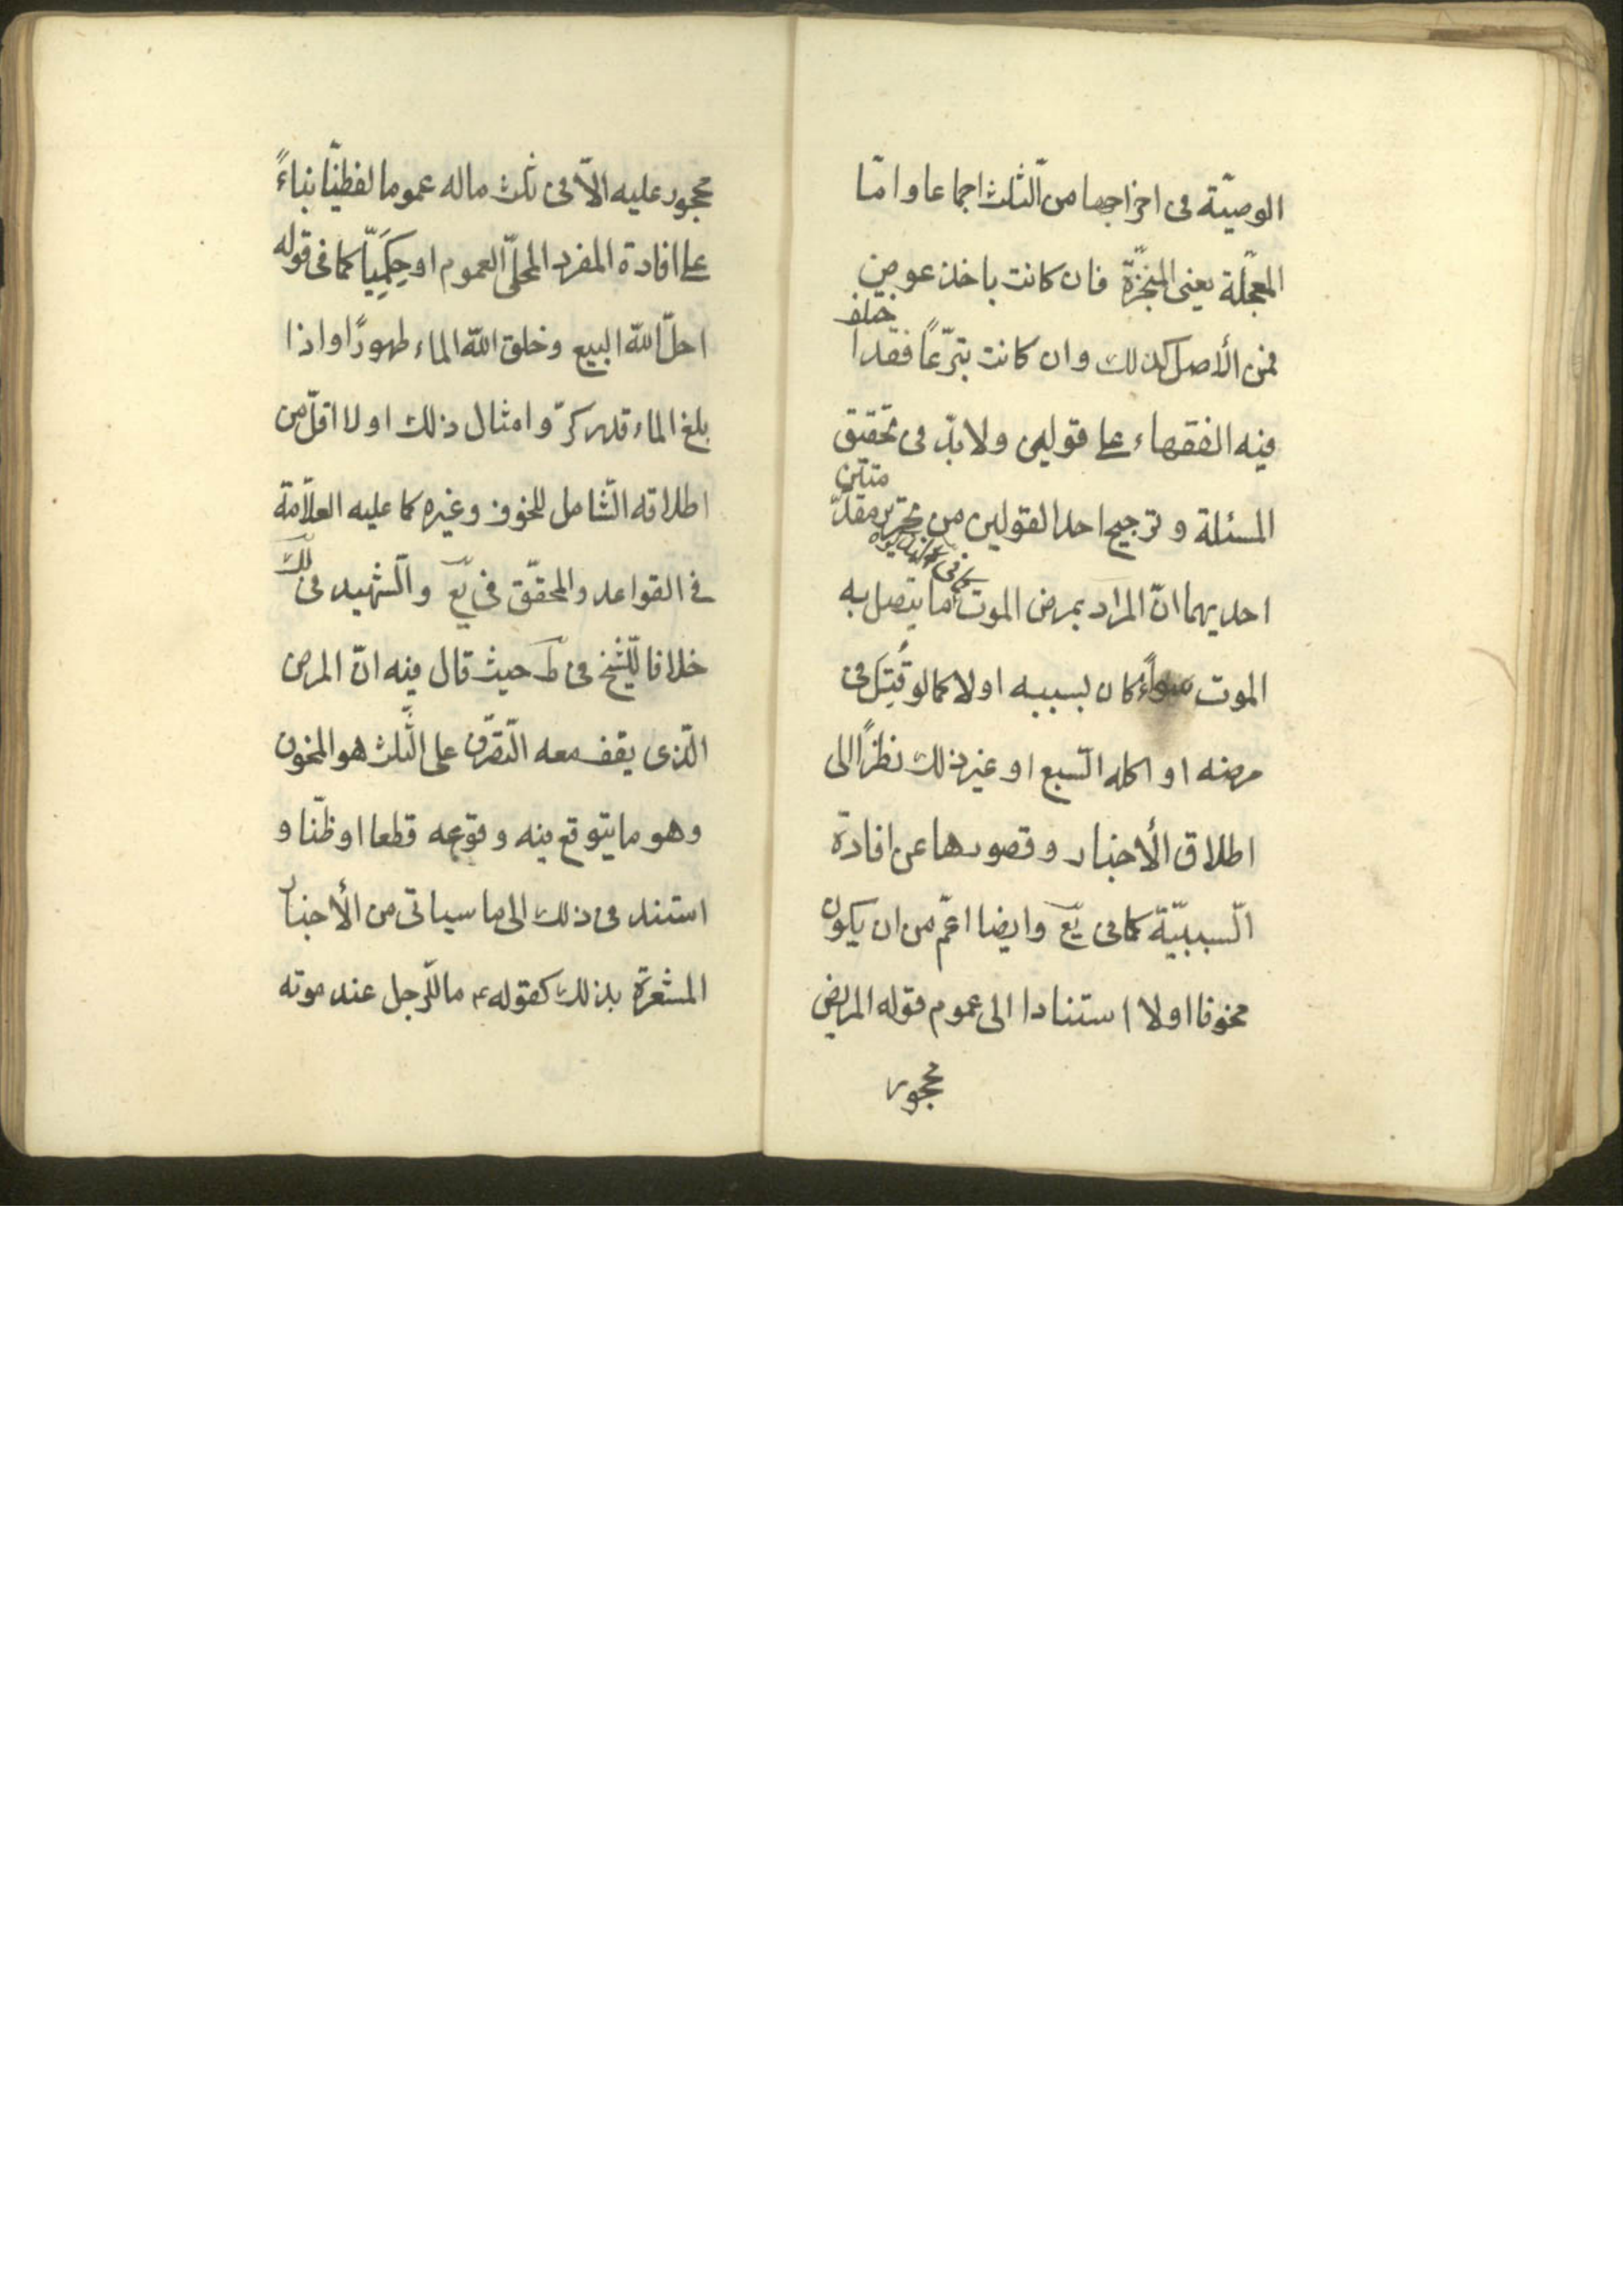 الوصيّة فى اخراجها من الثّلث اجماعا وامّا
المعجّلة يعنى المنجّزة فان كانت باخذ عوض
فمن الأصل كذلك وان كانت تبرّعاً فقد اختلف
فيه الفقهاء على قولين ولا بدّ فى تحقيق
المسئلة و ترجيح احد القولين من تحرير مقدّمتين
احديهما انّ المراد بمرض الموت ما يتصل به
الموت سواءً كان بسببه اولا كما لو قُتِل فى
مرضه او اكله السّبع او غير ذلك نظراً الى
اطلاق الأخبار وقصورها عن افادة
السّببيّة كما فى يع وايضا اعمّ من ان يكون
مخوفا اولا استنادا الى عموم قوله المريض
محجور
محجور عليه الّا فى ثلث ماله عموما لفظيّا بناءً
على افادة المفرد المحلّى العموم او حِكَمِيّا كما فى قوله
احلّ اللّه البيع وخلق اللّه الماء طهورًا واذا
بلغ الماء قدر كرّ وامثال ذلك اولا اقلّ من
اطلاقه الشّامل للمخوف وغيره كما عليه العلّامة
فى القواعد والمحقّق فى يع والشّهيد فى لك
خلافا للشّيخ فى ط حيث قال فيه انّ المرض
الّذى يقف معه التّصرّف على الثّلث هو المخوف
وهو ما يتوقع منه وقوعه قطعا او ظنّا و
استند فى ذلك الى ما سياتى من الأخبار
المشعرة بذلك كقوله ع ما للرّجل عند موته